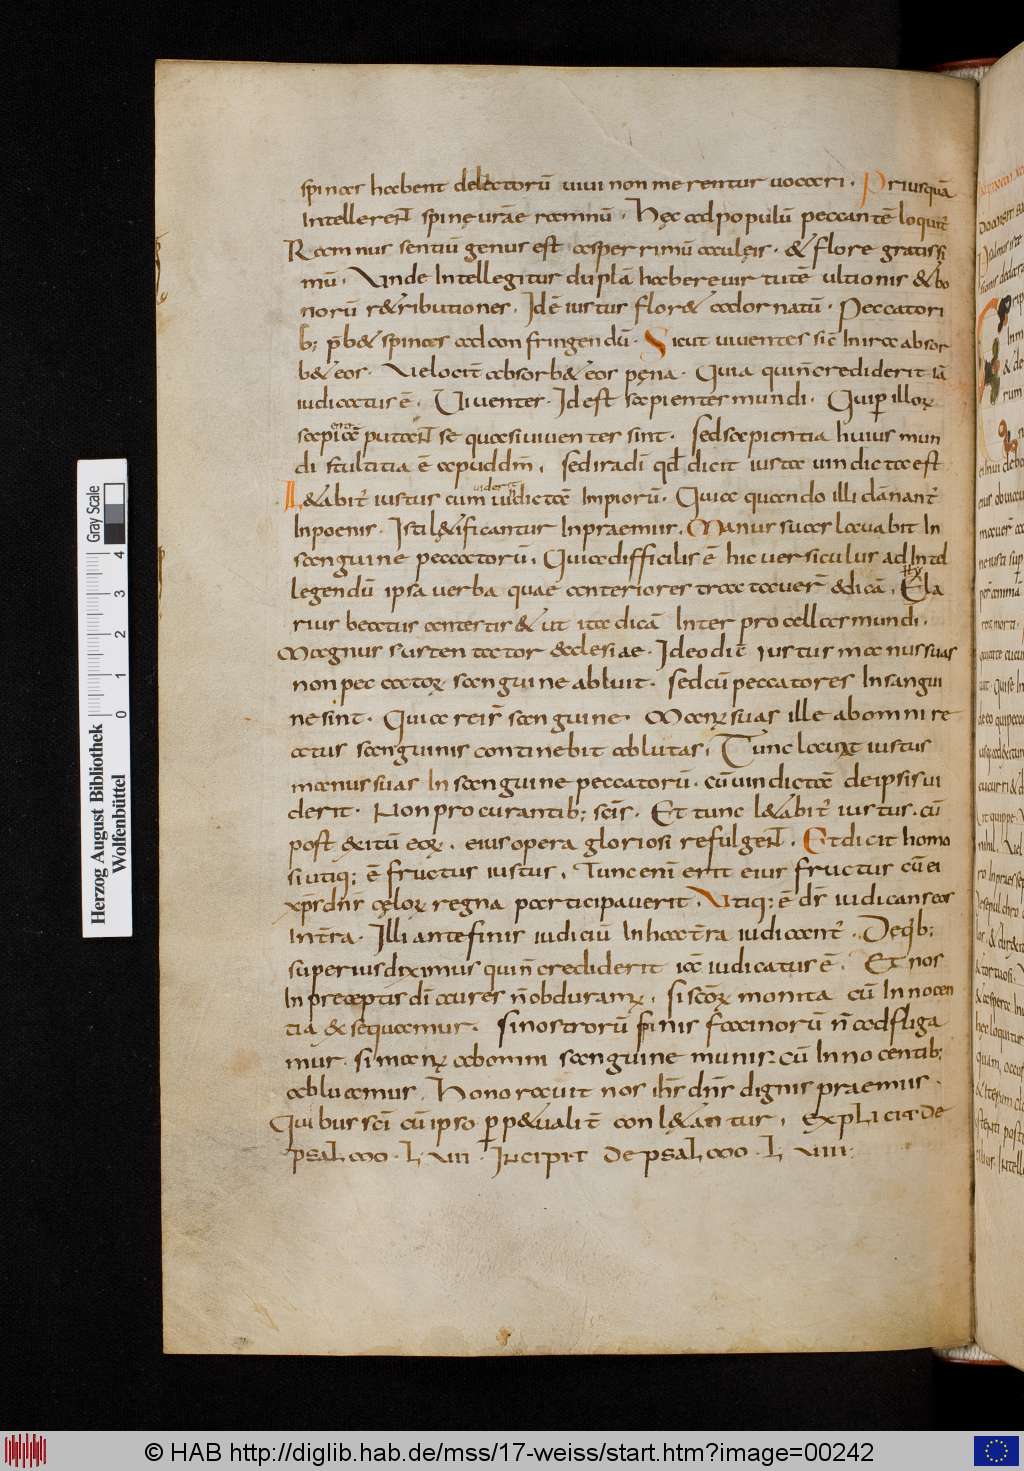 spinas habent delictorū uiui non merentur uocari . Priusquā
Intellerent spinę urāe ramnū . Hęc ad populū peccantē loquit̄
Ramnus sentiū genus est asperrimū aculeis . & flore gratissi
mū . Unde Intellegitur duplā habere uirtutē ultionis & bo
norū r&ributiones . Idē iustus flor& adornatū . Peccatori
b; p̄b& spinas ad confringendū . Sicut uiuentes sic̄ In ira absor
b& eos . Uelocit̄ absorb& eos pęna . Quia qui n̄ crediderit iā
iudicatus ē . Uiuentes . Id est sapientes mundi . Qui ꝑ illoꝝ
sapiētiā putant se quasi uiuentes sint . sed sapientia huius mun
di stultitia ē apud dm̄ . sed iradī qd̄ dicit iusta uindicta est
L&abit̄ iustus cum uiderit uindictā Impiorū . Quia quando illi dānant̄
In poenis . Isti l&ificantur In praemiis . Manus suas lauabit In
sanguine peccatorū . Quia difficilis ē hic uersiculus ad Intel
legendū ipsa uerba quae anteriores tractauer̄ & dicā . Ela
rius beatus antestis & ut ita dicā Inter procellas mundi .
Magnus sustentator ecclesiae . Ideo dic̄ iustus manus suas
non peccatoꝝ sanguine abluit . sed cū peccatores In sangui
ne sint . Quia rei s̄ sanguine . Manꝰ suas ille ab omni re
atus sanguinis continebit ablutas . Tunc lauat iustus
manus suas In sanguine peccatorū . cū uindictā de ipsis ui
derit . Non procurantib; scīs . Et tunc l&abit̄ iustus . cū
post exitū eoꝝ . eius opera gloriosi refulgent . Et dicit homo
si utiq; ē fructus iustus . Tunc enī erit eius fructus cū ei
xp̄s dn̄s cęloꝝ regna participauerit . Utiq; ē ds̄ iudicans eos
In t̄ra . Illi ante finis iudiciū In hac t̄ra iudicant̄ . De qb;
superius diximus qui n̄ crediderit iā iudicatus ē . Et nos
In praeceptis dī aures n̄ obduramꝰ . si scōꝝ monita cū Innocen
tia & sequamur . si nostrorū spinis facinorū n̄ adfliga
mur . si manꝰ ab omni sanguine munis . cū Innocentib;
abluamus . Honorauit nos ihs̄ dn̄s dignis praemiis .
Quibus scī cū ipso ꝑp&ualit̄ conl&antur . Explicit de
psalmo . L VII . Incipit de psalmo . L VIII .
Gray Scale
0 1 2 3 4
Herzog August Bibliothek
Wolfenbüttel
© HAB http://diglib.hab.de/mss/17-weiss/start.htm?image=00242